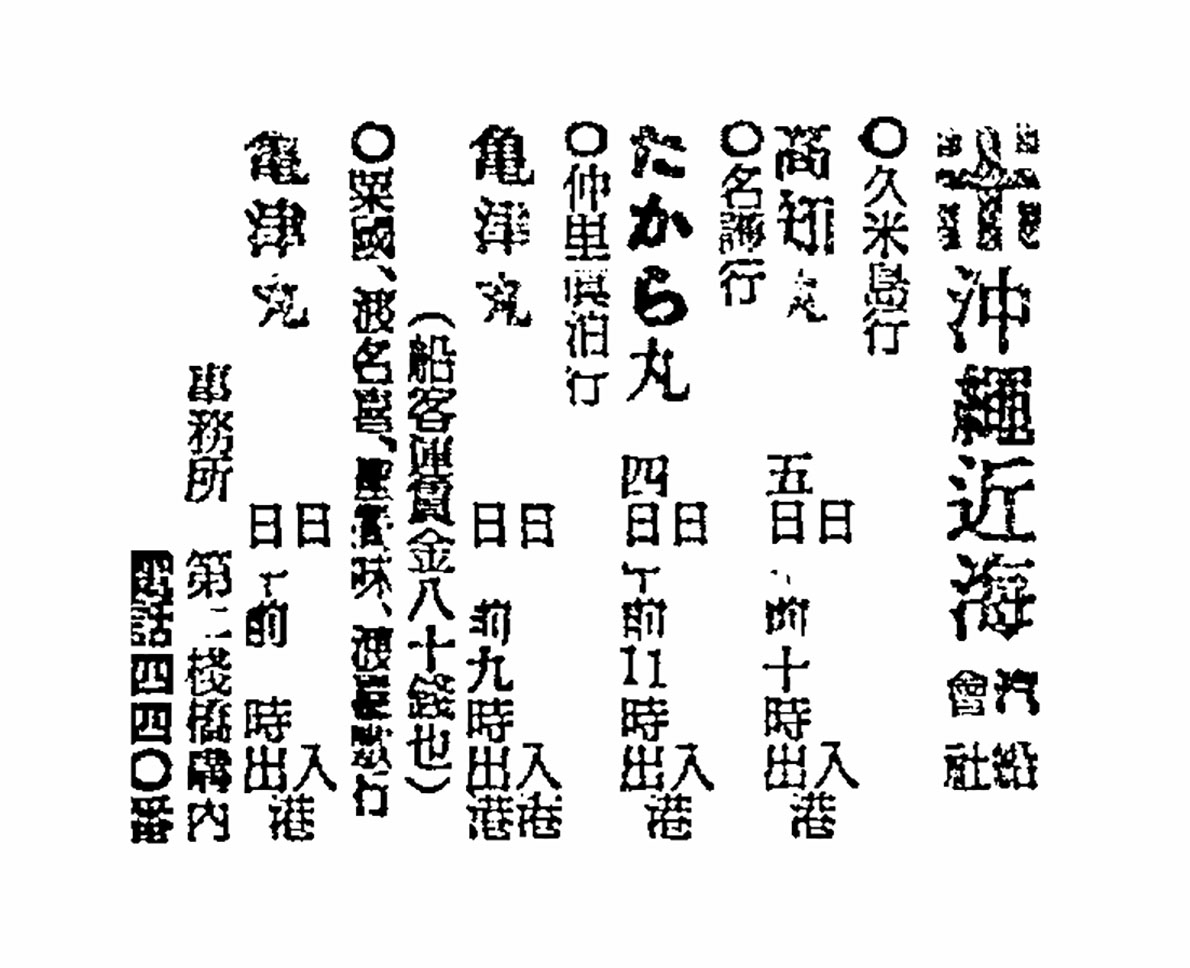 沖繩近海汽船會社
〇久米島行
高知丸 五日 日 前十時出港 入
〇名護行
たから丸 四日 日 午前11時出港 入
〇仲里眞泊行
亀津丸 日 日 前九時出港 入港
(船客運賃金八十錢也)
〇粟國、渡名喜、慶良味、渡嘉敷行
亀津丸 日 日 午前 時出港 入
事務所 第二棧橋構内
電話四四〇番